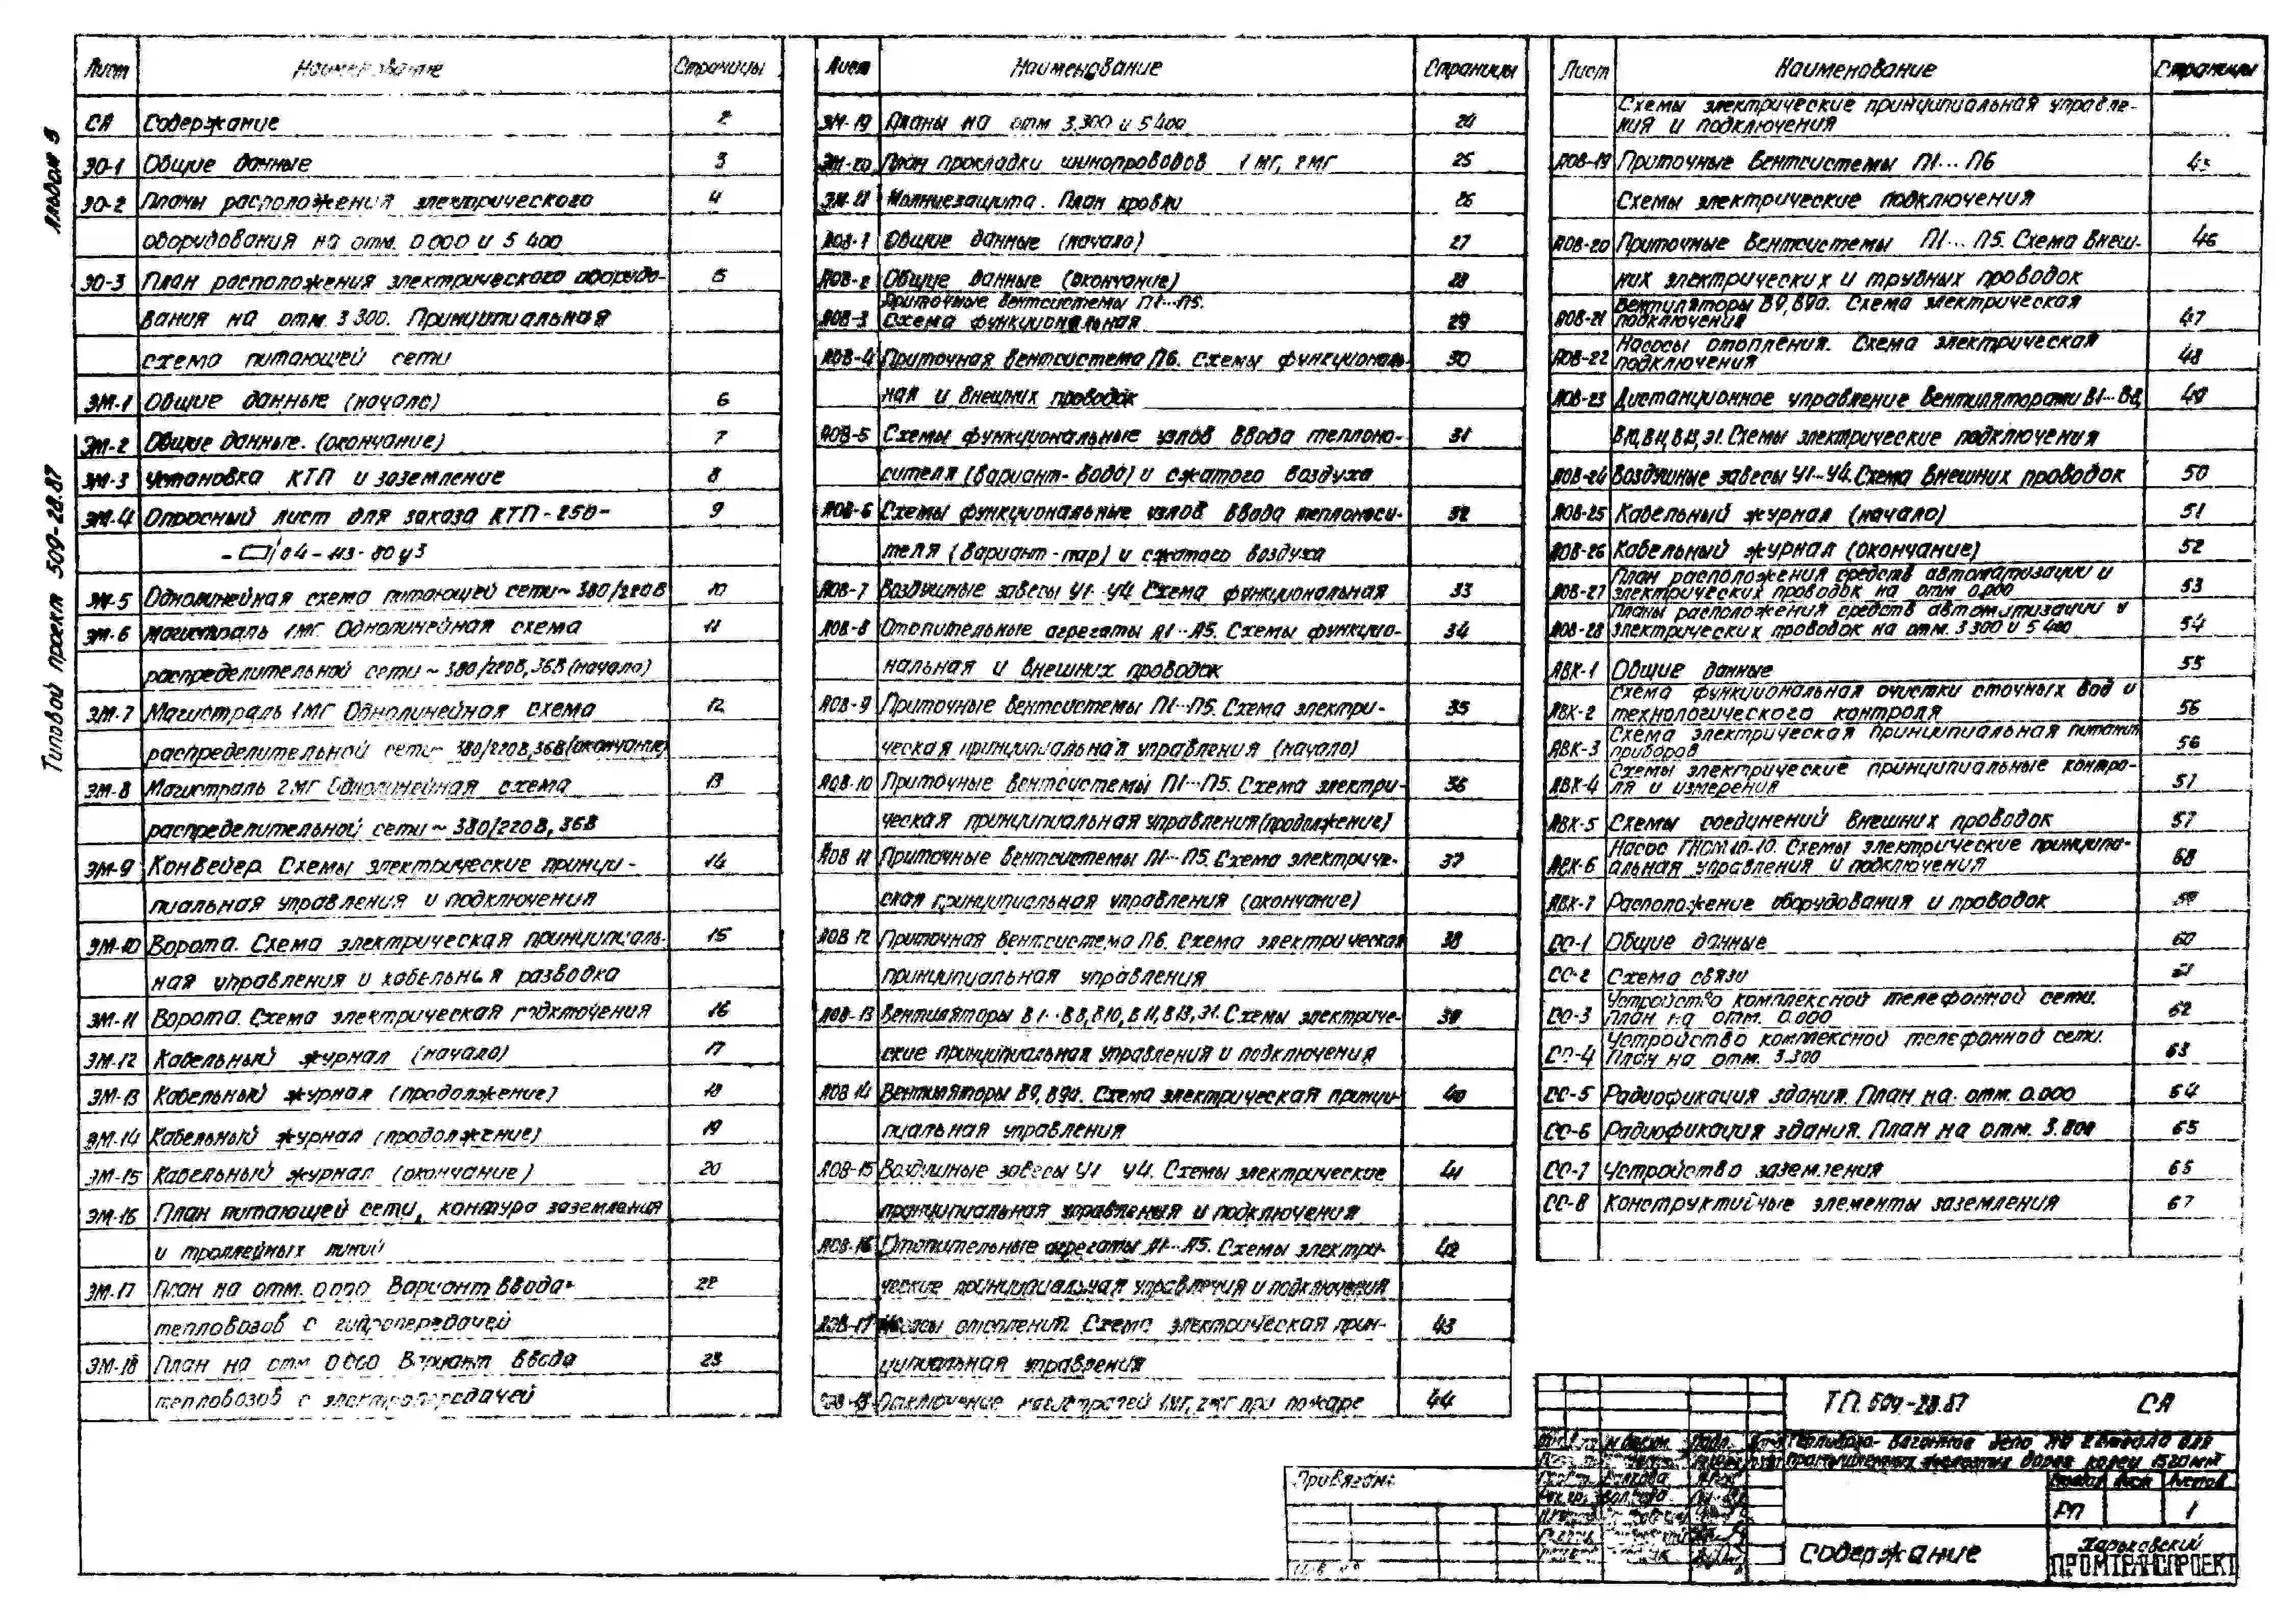 Альбом 5
Типовой проект 509-28.87
Лист Наименование Страницы
СА Содержание 2
ЭО-1 Общие данные 3
ЭО-2 Планы расположения электрического 4
оборудования на отм. 0.000 и 5.400
ЭО-3 План расположения электрического оборудо- 5
вания на отм. 3.300. Принципиальная
схема питающей сети
ЭМ-1 Общие данные (начало) 6
ЭМ-2 Общие данные. (окончание) 7
ЭМ-3 Установка КТП и заземление 8
ЭМ-4 Опросный лист для заказа КТП-250- 9
04-МЗ-80У3
ЭМ-5 Однолинейная схема питающей сети ~ 380/220В 10
ЭМ-6 Магистраль 1МГ Однолинейная схема 11
распределительной сети ~ 380/220В, 36В (начало)
ЭМ-7 Магистраль 1МГ Однолинейная схема 12
распределительной сети ~ 380/220В, 36В (окончание)
ЭМ-8 Магистраль 2МГ Однолинейная схема 13
распределительной сети ~ 380/220В, 36В
ЭМ-9 Конвейер Схемы электрические принци- 14
пиальная управления и подключения
ЭМ-10 Ворота. Схема электрическая принципиаль- 15
ная управления и кабельная разводка
ЭМ-11 Ворота. Схема электрическая подключения 16
ЭМ-12 Кабельный журнал (начало) 17
ЭМ-13 Кабельный журнал (продолжение) 18
ЭМ-14 Кабельный журнал (продолжение) 19
ЭМ-15 Кабельный журнал (окончание) 20
ЭМ-16 План питающей сети, контура заземления
и троллейных линий
ЭМ-17 План на отм. 0.000 Вариант ввода 22
тепловозов с гидропередачей
ЭМ-18 План на отм 0.000 Вариант ввода 23
тепловозов с электропередачей
Лист Наименование Страницы
ЭМ-19 Планы на отм 3.300 и 5.400 24
ЭМ-20 План прокладки шинопроводов 1МГ, 2МГ 25
ЭМ-21 Молниезащита. План кровли 26
АОВ-1 Общие данные (начало) 27
АОВ-2 Общие данные (окончание) 28
Приточные вентсистемы П1...П5.
АОВ-3 Схема функциональная 29
АОВ-4 Приточная вентсистема П6. Схемы функциональ- 30
ная и внешних проводок
АОВ-5 Схемы функциональные узлов ввода теплоно- 31
сителя (вариант-вода) и сжатого воздуха
АОВ-6 Схемы функциональные узлов ввода теплоноси- 32
теля (вариант-пар) и сжатого воздуха
АОВ-7 Воздушные завесы У1...У4. Схема функциональная 33
АОВ-8 Отопительные агрегаты А1...А5. Схемы функцио- 34
нальная и внешних проводок
АОВ-9 Приточные вентсистемы П1...П5. Схема электри- 35
ческая принципиальная управления (начало)
АОВ-10 Приточные вентсистемы П1...П5. Схема электри- 36
ческая принципиальная управления (продолжение)
АОВ 11 Приточные вентсистемы П1...П5. Схема электриче- 37
ская принципиальная управления (окончание)
АОВ 12 Приточная вентсистема П6. Схема электрическая 38
принципиальная управления
АОВ-13 Вентиляторы В1...В8, В10, В11, В13, Э1. Схемы электриче- 39
ские принципиальная управления и подключения
АОВ 14 Вентиляторы В9, В9а. Схема электрическая принци- 40
пиальная управления
АОВ-15 Воздушные завесы У1 У4. Схемы электрические 41
принципиальная управления и подключения
АОВ-16 Отопительные агрегаты А1...А5. Схемы электри- 42
ческие принципиальная управления и подключения
АОВ-17 Насосы отопления. Схема электрическая прин- 43
ципиальная управления
АОВ-18 Отключение магистралей 1МГ, 2МГ при пожаре 44
Лист Наименование Страницы
Схемы электрические принципиальная управле-
ния и подключения
АОВ-19 Приточные вентсистемы П1...П6 45
Схемы электрические подключения
АОВ-20 Приточные вентсистемы П1...П5. Схема внеш- 46
них электрических и трубных проводок
Вентиляторы В9, В9а. Схема электрическая
АОВ-21 подключения 47
Насосы отопления. Схема электрическая
АОВ-22 подключения 48
АОВ-23 Дистанционное управление вентиляторами В1...В8, 49
В10, В11, В13, Э1. Схемы электрические подключения
АОВ-24 Воздушные завесы У1...У4. Схема внешних проводок 50
АОВ-25 Кабельный журнал (начало) 51
АОВ-26 Кабельный журнал (окончание) 52
План расположения средств автоматизации и
АОВ-27 электрических проводок на отм 0.000 53
Планы расположения средств автоматизации и
АОВ-28 электрических проводок на отм. 3.300 и 5.400 54
АВК-1 Общие данные 55
Схема функциональная очистки сточных вод и
АВК-2 технологического контроля 56
Схема электрическая принципиальная питания
АВК-3 приборов 56
Схемы электрические принципиальные контро-
АВК-4 ля и измерения 57
АВК-5 Схемы соединений внешних проводок 57
Насос ГНОМ 10-10. Схемы электрические принципи-
АВК-6 альная управления и подключения 58
АВК-7 Расположение оборудования и проводок 59
СС-1 Общие данные 60
СС-2 Схема связи
Устройство комплексной телефонной сети.
СС-3 План на отм. 0.000 62
Устройство комплексной телефонной сети.
СС-4 План на отм. 3.300 63
СС-5 Радиофикация здания. План на отм. 0.000 64
СС-6 Радиофикация здания. План на отм. 3.300 65
СС-7 Устройство заземления 65
СС-8 Конструктивные элементы заземления 67
ТП. 509-28.87 СА
Тепловозо-вагонное депо на 2 стойла для
промышленных железных дорог колеи 1520 мм
Стадия Лист Листов
РП 1
Привязан:
Содержание
Харьковский
ПРОМТРАНСПРОЕКТ